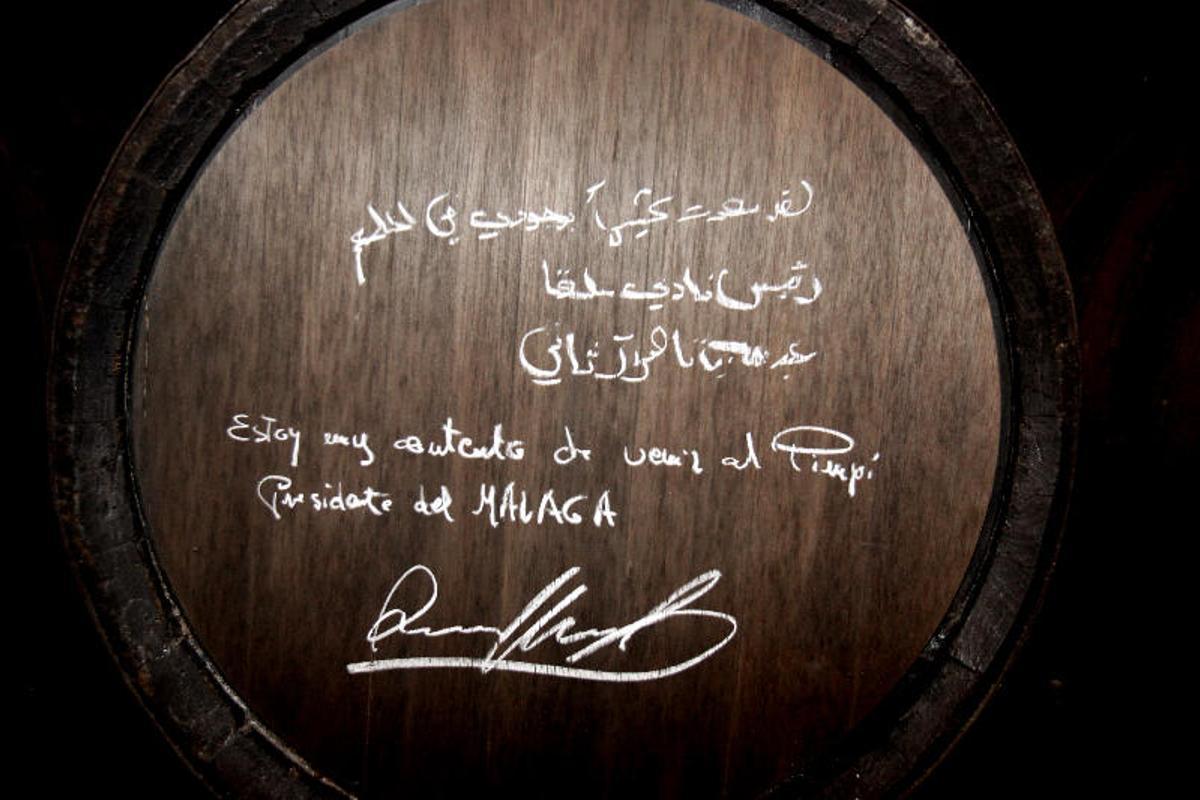 لقد سعدت كثيراً بوجودي في
رئيس نادي ملقا
عبدالله بن ناصر آل ثاني
Estoy muy contento de venir al Pimpi
Presidente del MALAGA